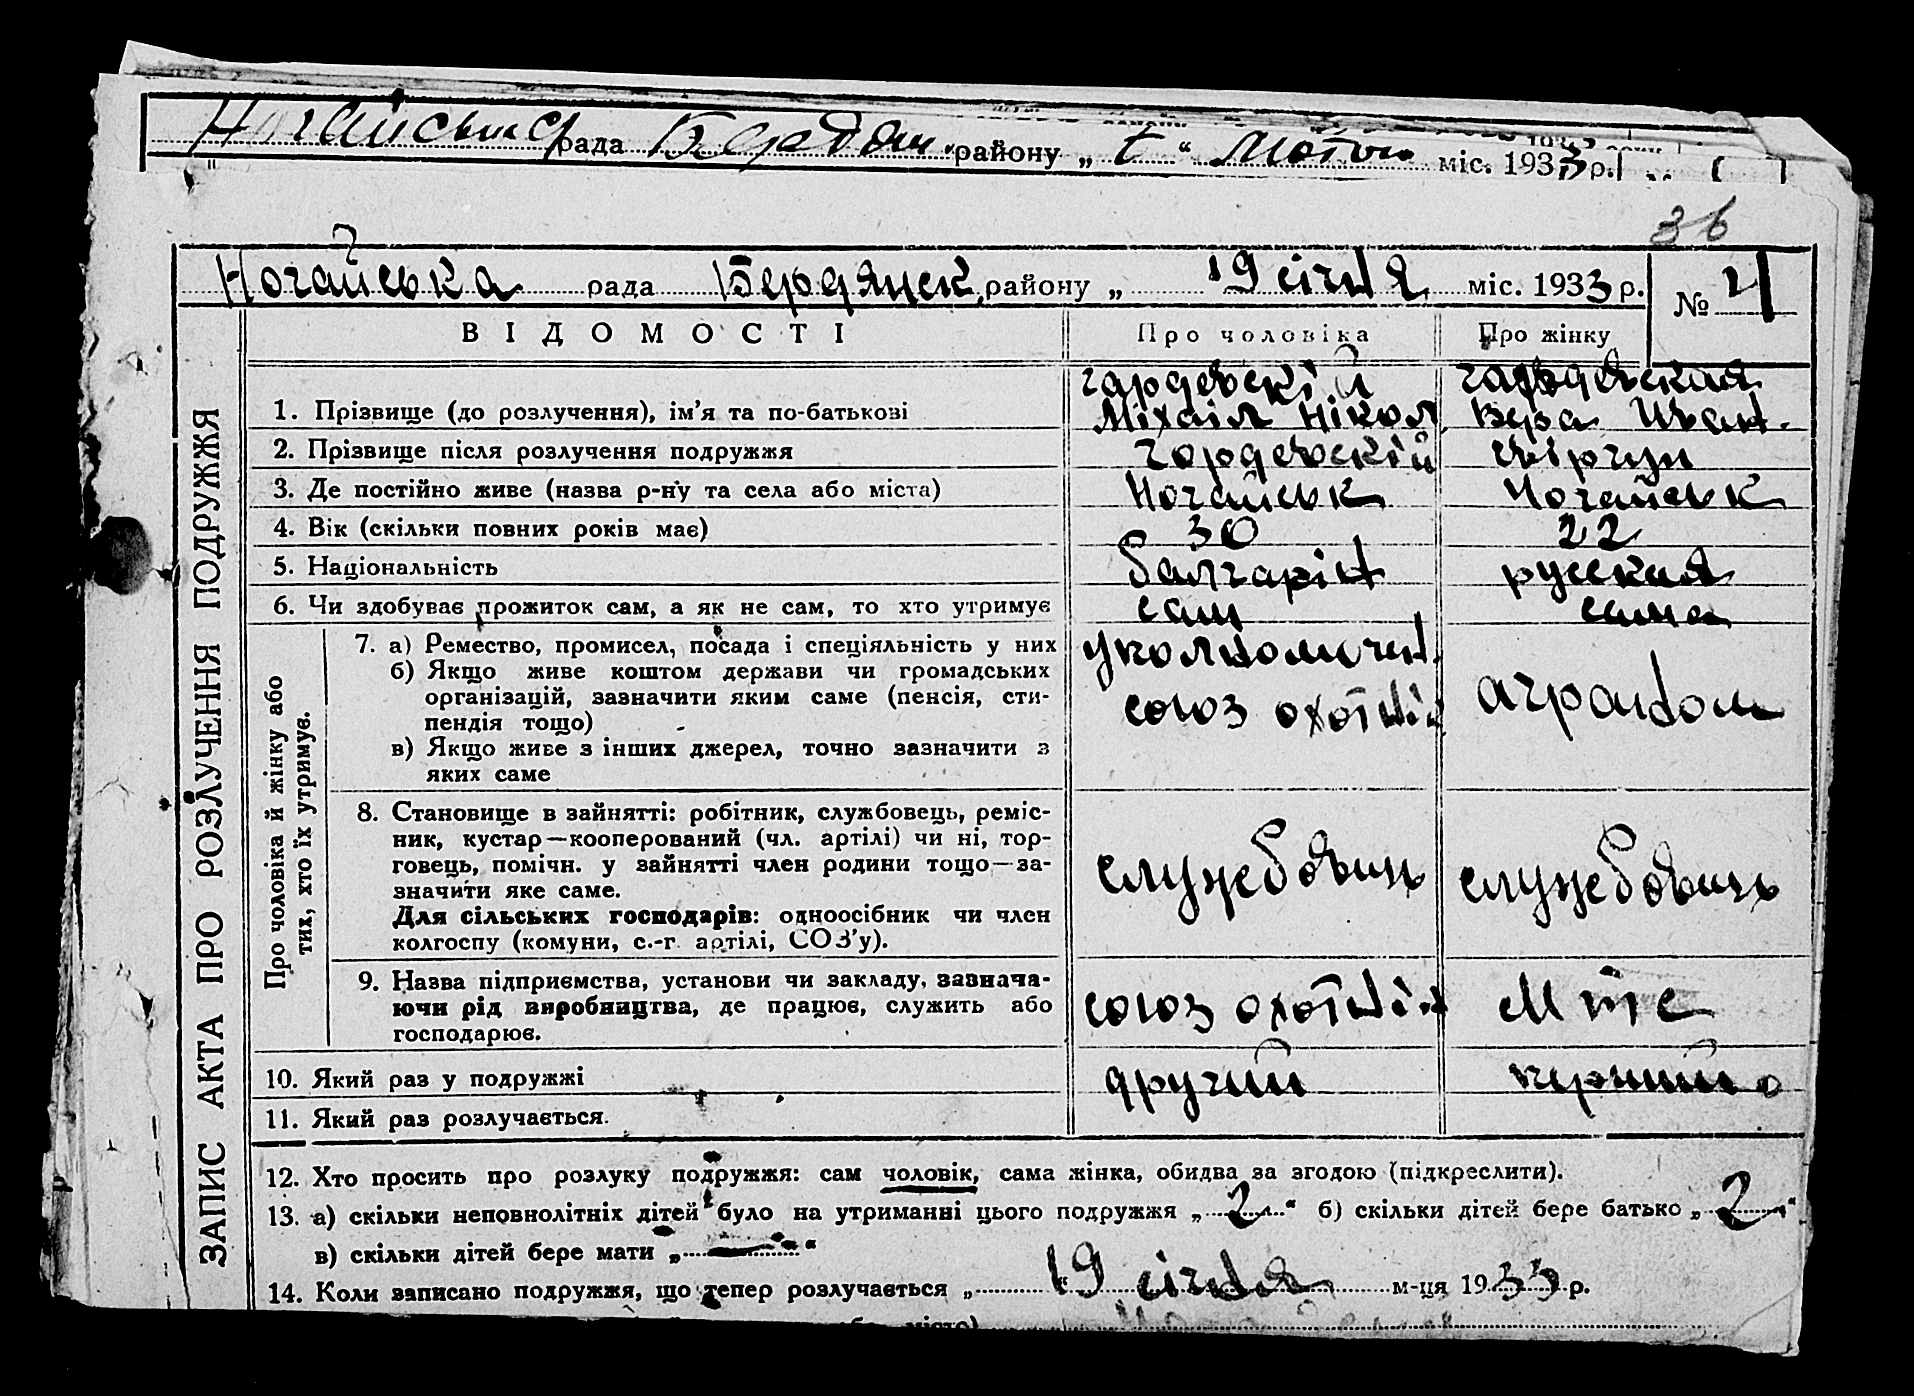 Ногайська рада Бердян. району „ “ міс. 1933 р.
36
Ногайська рада Бердянск. району „ 19 січня міс. 1933 р.
№ 4
ВІДОМОСТІ Про чоловіка Про жінку
1. Прізвище (до розлучення), ім’я та по-батькові
гордевскій
Міхаіл Нікол.
гордевская
Вера Иван.
2. Прізвище після розлучення подружжя гордевскій
3. Де постійно живе (назва р-ну та села або міста) Ногайськ Ногайськ
4. Вік (скільки повних років має) 30 22
5. Національність балгарін русская
6. Чи здобуває прожиток сам, а як не сам, то хто утримує сам сама
ЗАПИС АКТА ПРО РОЗЛУЧЕННЯ ПОДРУЖЖЯ
Про чоловіка й жінку або
тих, хто їх утримує.
7. а) Ремество, промисел, посада і спеціяльність у них
б) Якщо живе коштом держави чи громадських
організацій, зазначити яким саме (пенсія, сти-
пендія тощо)
в) Якщо живе з інших джерел, точно зазначити з
яких саме
уполномочен.
союз охотнік
аграном
8. Становище в зайнятті: робітник, службовець, реміс-
ник, кустар—кооперований (чл. артілі) чи ні, тор-
говець, помічн. у зайнятті член родини тощо—за-
значити яке саме.
Для сільських господарів: одноосібник чи член
колгоспу (комуни, с.-г. артілі, СОЗ’у).
служебовиць служебовиць
9. Назва підприємства, установи чи закладу, зазнача-
ючи рід виробництва, де працює, служить або
господарює.
союз охотнік МТС
10. Який раз у подружжі другий перший
11. Який раз розлучається.
12. Хто просить про розлуку подружжя: сам чоловік, сама жінка, обидва за згодою (підкреслити).
13. а) скільки неповнолітніх дітей було на утриманні цього подружжя „ 2 “ б) скільки дітей бере батько „ 2 “
в) скільки дітей бере мати „ — “
14. Коли записано подружжя, що тепер розлучається „ 19 “ січня м-ця 1933 р.